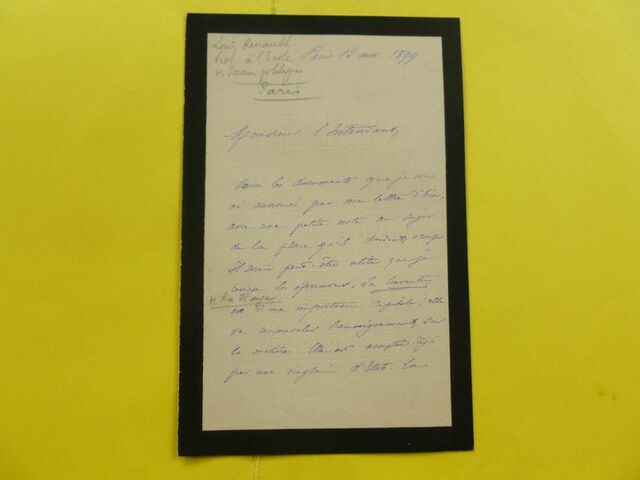 Louis Renault
Prof à l'Ecole
Paris
Paris 12 nov. 1899
Monsieur l'Intendant,
Voici les documents que je vous
ai annoncés par ma lettre d'hier,
avec une petite note au sujet
de la place qu'ils doivent occuper
Il serait peut-être utile que je
les épreuves. La Convention
de La Haye
est d'une importance capitale; elle
va renouveler l'enseignement sur
la matière. Elle est acceptée déjà
par une vingtaine d'Etats. La